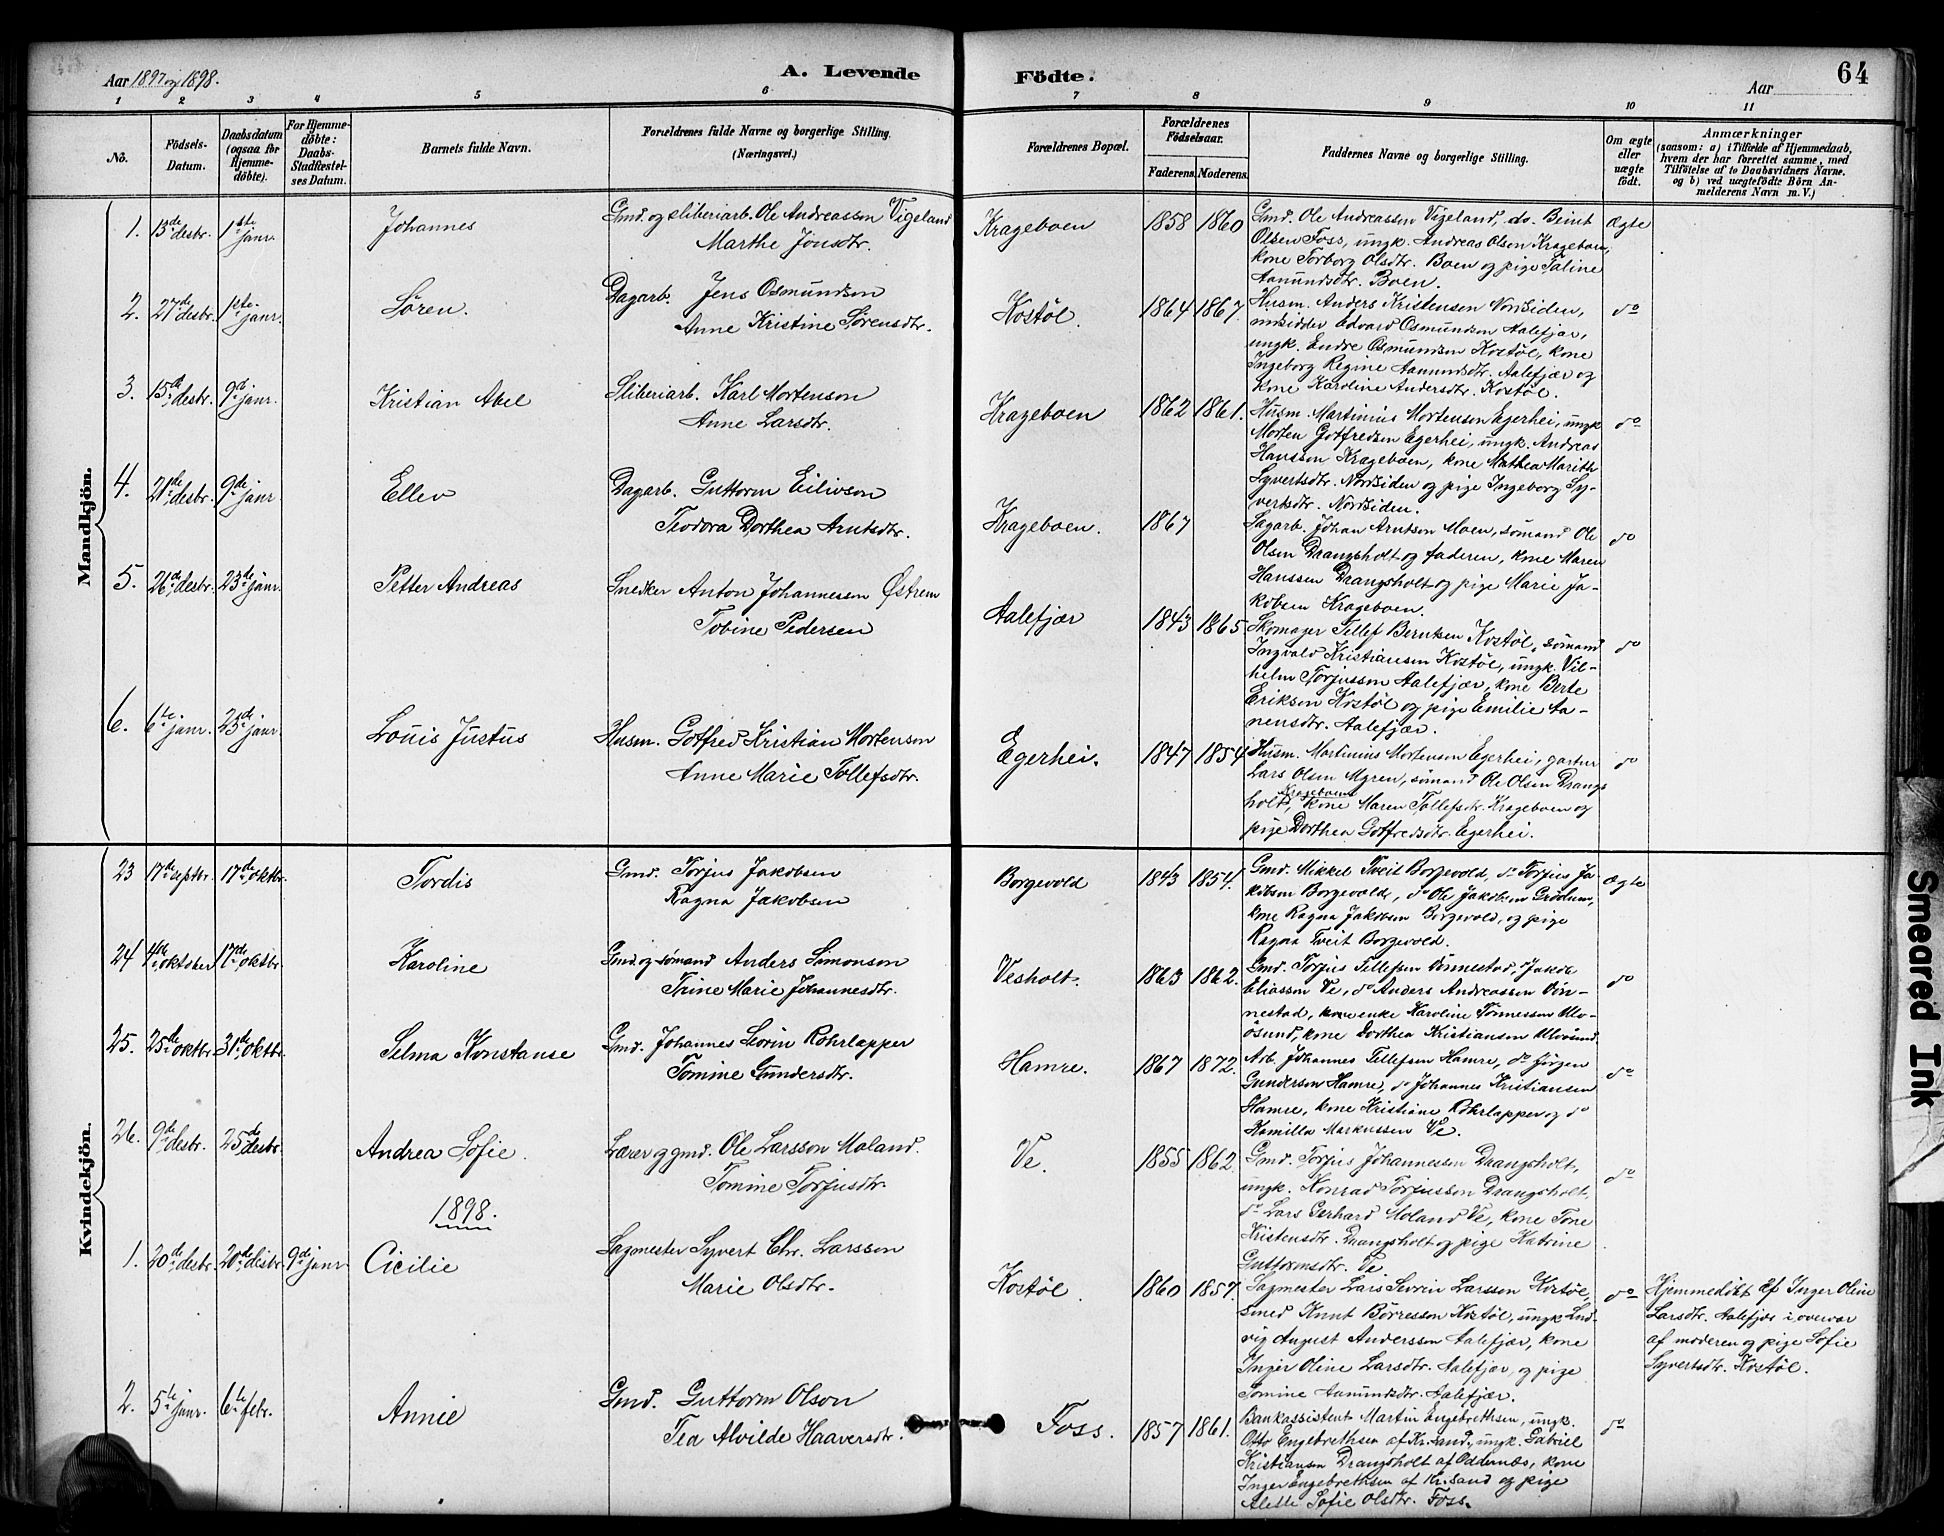 Aar 1897 og 1898.
A. Levende
Födte.
Aar
64
1 2 3 4 5 6 7 8 9 10 11
No.
Födsels-
Datum.
Daabsdatum
(ogsaa for
Hjemme-
döbte).
For Hjemme-
döbte:
Daabs-
Stadfæstel-
ses Datum.
Barnets fulde Navn.
Forældrenes fulde Navne og borgerlige Stilling.
(Næringsvei.)
Forældrenes Bopæl.
Forældrenes
Födselsaar.
Faderens. Moderens.
Faddernes Navne og borgerlige Stilling.
Om ægte
eller
uægte
födt.
Anmærkninger
(saasom: a) i Tilfælde af Hjemmedaab,
hvem der har forrettet samme, med
Tilföielse af to Daabsvidners Navne.
og b) ved uægtefödte Börn An-
melderens Navn m. V.)
Mandkjön.
1. 13de desbr. 1ste janr. Johannes
Gmd. og sliberiarb. Ole Andreassen Vigeland
Marthe Jonsdtr.
Krageboen 1858 1860
Gmd. Ole Andreassen Vigeland, do. Beint
Olsen Foss, ungk. Andreas Olsen Krageboen,
kone Torborg Olsdtr. Boen og pige Taline
Aamundsdtr. Boen.
Ægte
2. 27de desbr. 1ste janr. Søren.
Dagarb. Jens Osmundsen
Anne Kristine Sørensdtr.
Kostøl. 1864 1867.
Husm. Anders Kristensen Nordsiden,
indsidder Edvard Osmundsen Aalefjær,
ungk. Endre Osmundsen Kostøl, kone
Ingeborg Regine Aamundsdtr. Aalefjær og
kone Karoline Andersdtr. Kostøl.
do
3. 15de desbr. 9de janr. Kristian Abel
Sliberiarb. Karl Mortensen
Anne Larsdtr.
Krageboen 1862 1861.
Husm. Martinius Mortensen Egerhei, ungk
Morten Gotfredsen Egerhei, ungk. Andreas
Hanssen Krageboen, kone Mathea Marith
Syvertsdtr. Nordsiden og pige Ingeborg Sy-
vertsdtr. Nordsiden.
do
4. 21de desbr. 9de janr. Ellev
Dagarb. Guttorm Eilivsen
Teodora Dorthea Arntsdtr.
Krageboen. 1867
Sagarb. Johan Arntsen Moen, sømand Ole
Olsen Drangsholt og faderen, kone Maren
Hanssen Drangsholt og pige Marie Ja-
kobsen Krageboen.
do
5. 26de desbr. 23de janr. Petter Andreas
Snedker Anton Johannesen Østrem
Tobine Pedersen
Aalefjær 1843 1865
Skomager Tellef Berntsen Kostøl, sømand
Ingvald Kristiansen Kostøl, ungk. Vil-
helm Torjussen Aalefjær, kone Berte
Eriksen Kostøl og pige Emilie Aa-
nensdtr. Aalefjær.
do
6. 6te janr. 23de janr. Louis Justus
Husm. Gotfred Kristian Mortensen
Anne Marie Tollefsdtr.
Egerhei. 1847 1854
Husm. Martinius Mortensen Egerhei, gartner
Lars Olsen Myren, sømand Ole Olsen Drangs
holt, Krageboen kone Maren Tollefsdtr. Krageboen og
pige Dorthea Gotfredsdtr. Egerhei.
do
Kvindekjön.
23 17de septbr. 17de oktbr. Tordis
Gmd. Torjus Jakobsen
Ragna Jakobsen
Borgevold 1843 1854.
Gmd. Mikkel Tveit Borgevold, do Torjus Ja-
kobsen Borgevold, do Ole Jakobsen Grødum,
kone Ragna Jakobsen Borgevold, og pige
Ragna Tveit Borgevold.
ægte
24 4de oktober 17de oktbr. Karoline
Gmd. og sømand Anders Simonsen
Trine Marie Johannesdtr.
Vesholt. 1863 1862.
Gmd. Torjus Tellefsen Vønnestad, do Jakob
Eliassen Ve, do Anders Andreassen Vøn-
nestad, kone enke Karoline Tønnessen Ulv-
øsund, kone Dorthea Kristiansen Ulvøsund
do
25. 25de oktbr. 31de oktbr. Selma Konstanse
Gmd. Johannes Severin Rohrlapper
Tomine Gundersdtr.
Hamre. 1867 1872.
Arb. Johannes Tellefsen Hamre, do Jørgen
Gundersen Hamre, do Johannes Kristiansen
Hamre, kone Kristine Rohrlapper og do
Kamilla Markussen Ve.
do
26. 9de desbr. 25de desbr. Andrea Sofie.
Lærer og gmd. Ole Larsson Moland.
Tomine Torjusdtr.
Ve. 1855 1862
Gmd. Torjus Johannessen Drangsholt,
ungk. Konrad Torjussen Drangsholt,
do Lars Gerhard Moland Ve, kone Tone
Kristensdtr. Drangsholt og pige Katrine
Guttormsdtr. Ve
do
1898.
1. 20de desbr. 20de desbr. 9de janr Cicilie
Sagmester Syvert Chr. Larssen
Marie Olsdtr.
Kostøl. 1860 1857.
Sagmester Lars Severin Larssen Kostøl,
smed Knut Børressen Kostøl, ungk. Lud-
vig August Anderssen Aalefjær, kone
Inger Oline Larsdtr. Aalefjær, og pige
Tomine Aamundsdtr. Aalefjær.
do
Hjemmedøbt af Inger Oline
Larsdtr. Aalefjær i overvær
af moderen og pige Sofie
Syvertsdtr. Kostøl.
2. 5te janr. 6te febr. Annie
Gmd. Guttorm Olson
Tea Alvilde Haaversdtr.
Foss. 1857 1861.
Bankassistent Martin Engebrethsen, ungk.
Otto Engebrethsen af Kr.sand, ungk. Gabriel
Kristiansen Drangsholt af Oddernæs, kone
Inger Engebrethsen af Kr.sand og pige
Alette Sofie Olsdtr. Foss.
do
Smeared Ink